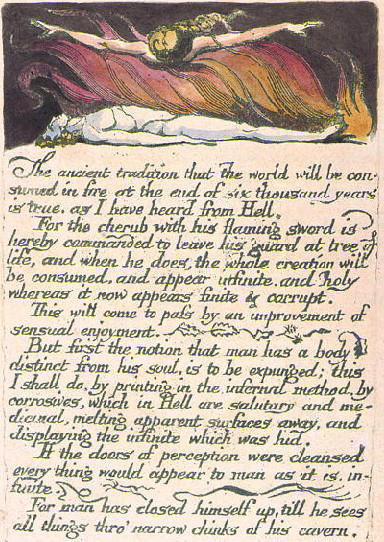 The ancient tradition that the world will be con-
sumed in fire at the end of six thousand years
is true. as I have heard from Hell.
For the cherub with his flaming sword is
hereby commanded to leave his guard at tree of
life, and when he does, the whole creation will
be consumed, and appear infinite. and holy
whereas it now appears finite & corrupt.
This will come to pass by an improvement of
sensual enjoyment.
But first the notion that man has a body
distinct from his soul, is to be expunged; this
I shall do, by printing in the infernal method, by
corrosives, which in Hell are salutary and me-
dicinal, melting apparent surfaces away, and
displaying the infinite which was hid.
If the doors of perception were cleansed
every thing would appear to man as it is, in-
finite.
For man has closed himself up, till he sees
all things thro' narrow chinks of his cavern.